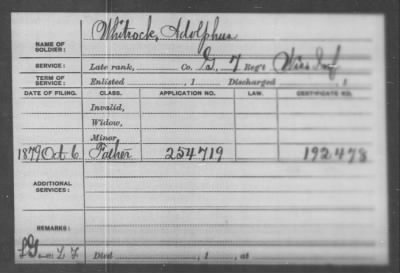 NAME OF SOLDIER: Whitrock, Adolphus
SERVICE: Late rank, Co. G, 7 Reg't Wis Inf
TERM OF SERVICE: Enlisted , 1 Discharged , 1
DATE OF FILING. CLASS. APPLICATION NO. LAW. CERTIFICATE NO.
Invalid,
Widow,
Minor,
1879 Oct 6 Father 254719 192478
ADDITIONAL SERVICES:
REMARKS:
Died , 1 , at